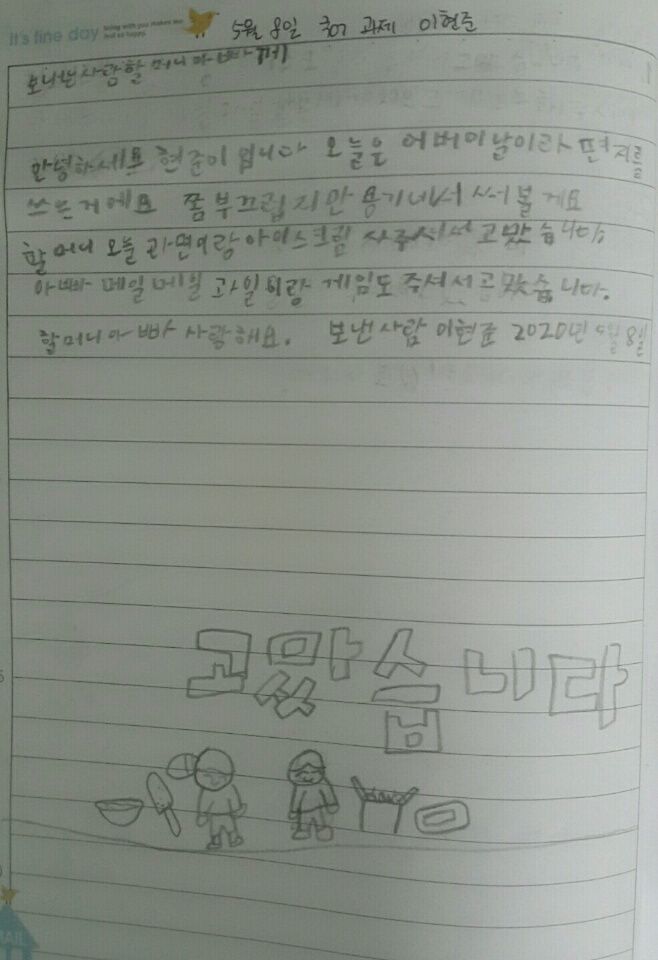 It's fine day living with you makes me feel so happy.
5월 8일 국어 과제 이현준
보내는사람할머니아빠께
안녕하세요 현준이 입니다 오늘은 어버이날이라 편지를
쓰는거에요 쫌 부끄럽지만 용기내서 써 볼게요
할머니 오늘 라면이랑 아이스크림 사주셔서 고맜습니다.
아빠 메일메일 과일이랑 게임도 주셔서 고맜습니다.
할머니아빠 사랑해요. 보낸사람 이현준 2020년 5월 8일
고맜습니다
MAIL